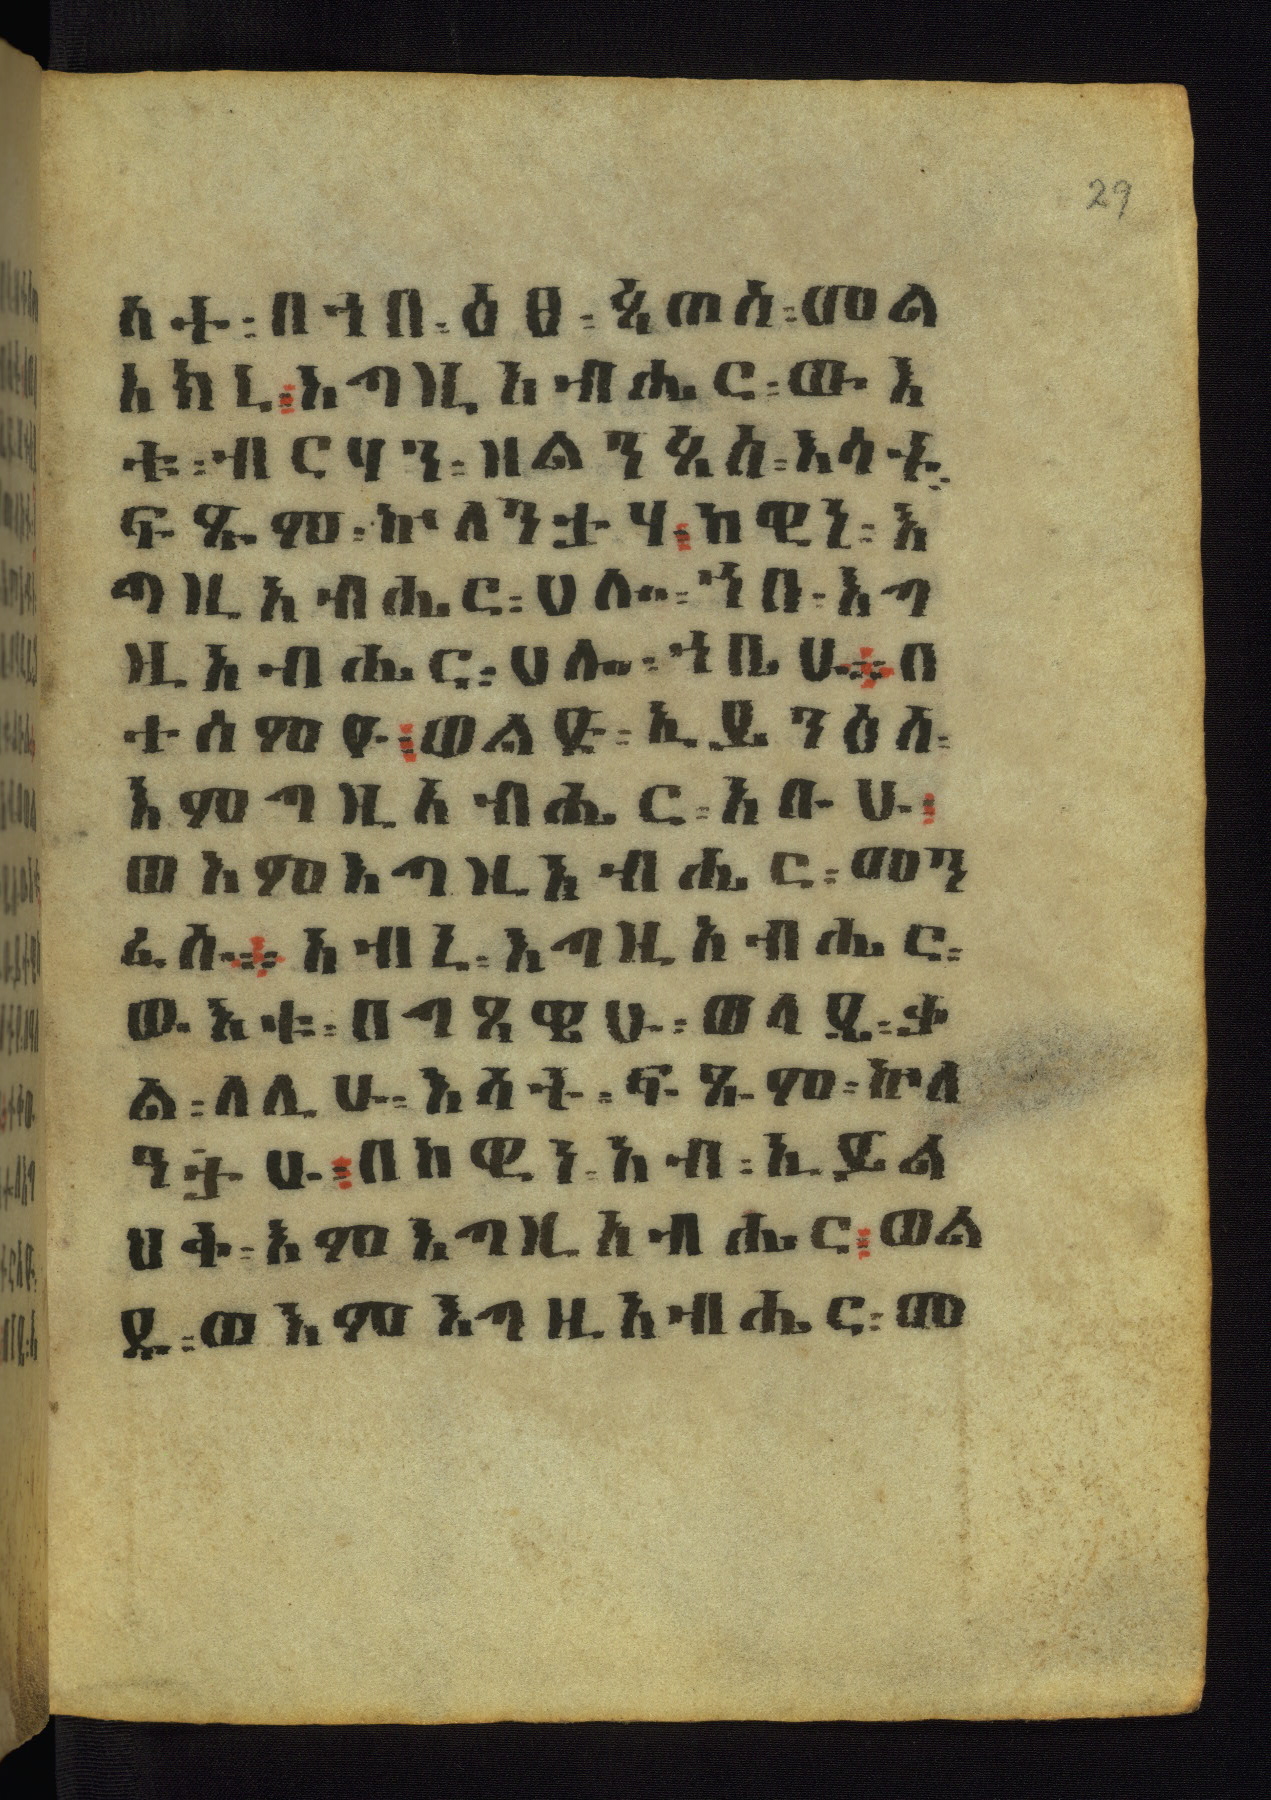 29
አቱ፡ በኀበ፡ ዕፀ፡ ጳጦስ፡ መል
አከ ኒ፡ እግዚአብሔር፡ ውእ
ቱ፡ ብርሃን፡ ዘልንጳስ፡ እሳት፡
ፍጹም፡ ኵለንታሃ፡ ከዊነ፡ እ
ግዚአብሔር፡ ሀሎ፡ ኀቡ፡ እግ
ዚአብሔር፡ ሀሎ፡ ኀቤሁ። በ
ተሰምዮ፡ ወልድ፡ ኢይንዕስ፡
እምግዚአብሔር፡ አቡሁ፡
ወእምእግዚአብሔር፡ መን
ፈሱ። አብ ኒ፡ እግዚአብሔር፡
ውእቱ፡ በገጻዊሁ፡ ወላዲ፡ ቃ
ል፡ ለሊሁ፡ እሳት፡ ፍጹም፡ ኵለ
ንታሁ፡ በከዊነ፡ አብ፡ ኢይል
ህቅ፡ እምእግዚአብሔር፡ ወል
ዱ፡ ወእምእግዚአብሔር፡ መ